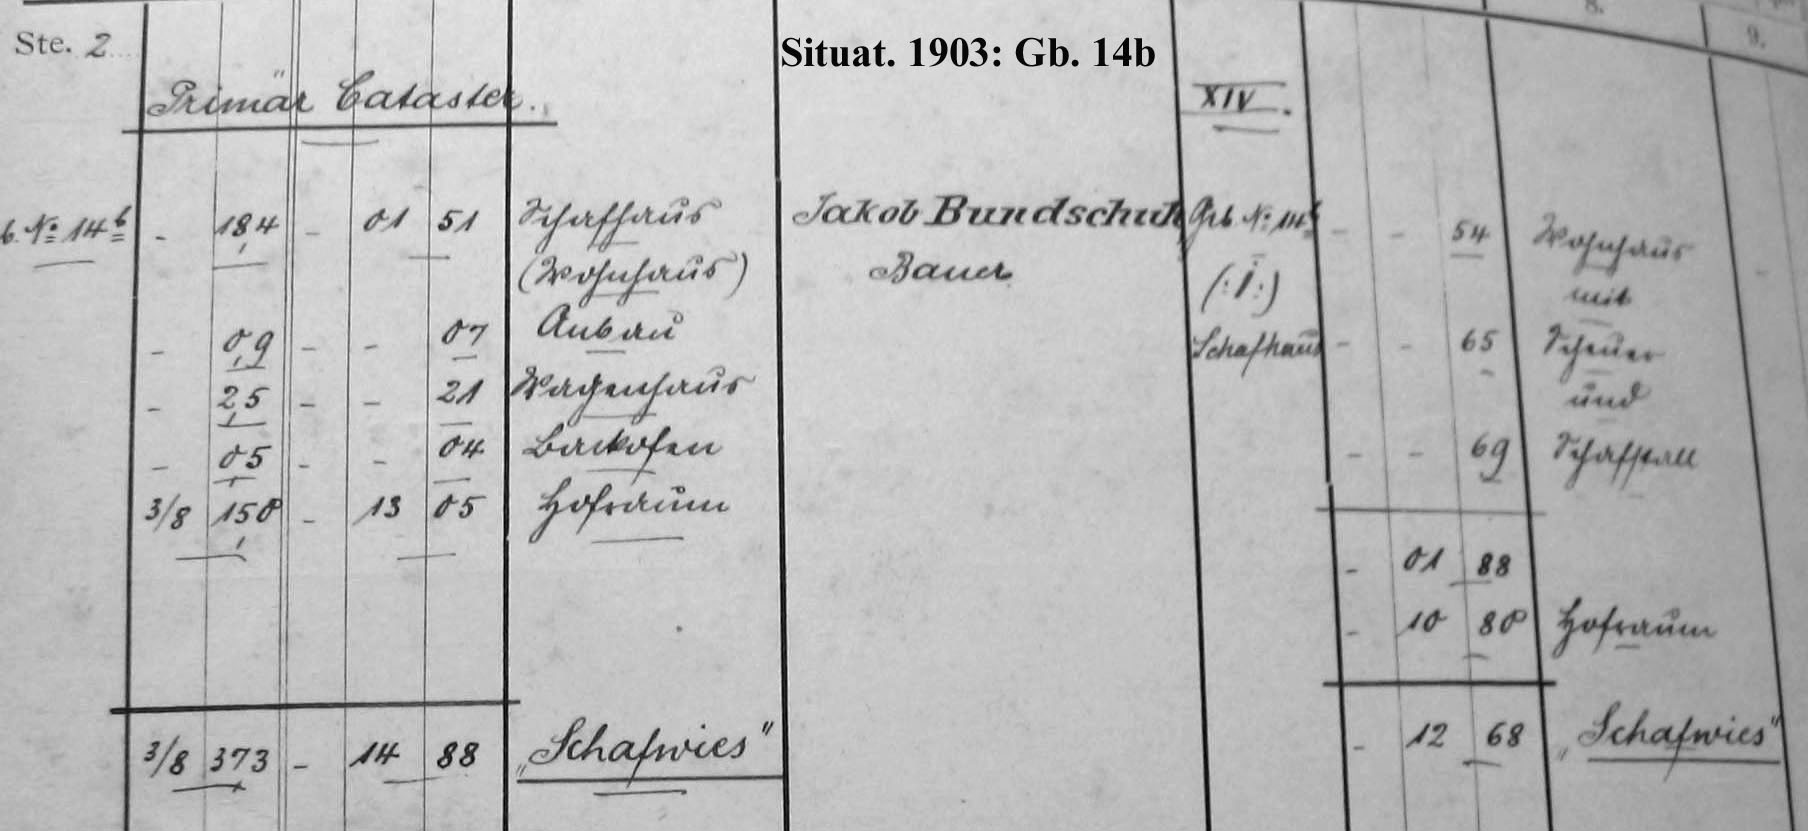 8.
9.
Ste. 2
Situat. 1903: Gb. 14b
Primär Cataster.
XIV.
b. No 14b - 18,4 - 01 51 Schafhaus Jakob Bundschuh Geb. No 14b - - 54 Wohnhaus
(Wohnhaus) Bauer (:I:) mit
- 0,9 - - 07 Anbau Schafhaus - - 65 Scheuer
- 2,5 - - 21 Wagenhaus und
- 0,5 - - 04 Backofen - - 69 Schafstall
3/8 15,0 - 13 05 Hofraum
- 01 88
- 10 80 Hofraum
3/8 37,3 - 14 88 „Schafwies" - 12 68 „Schafwies"